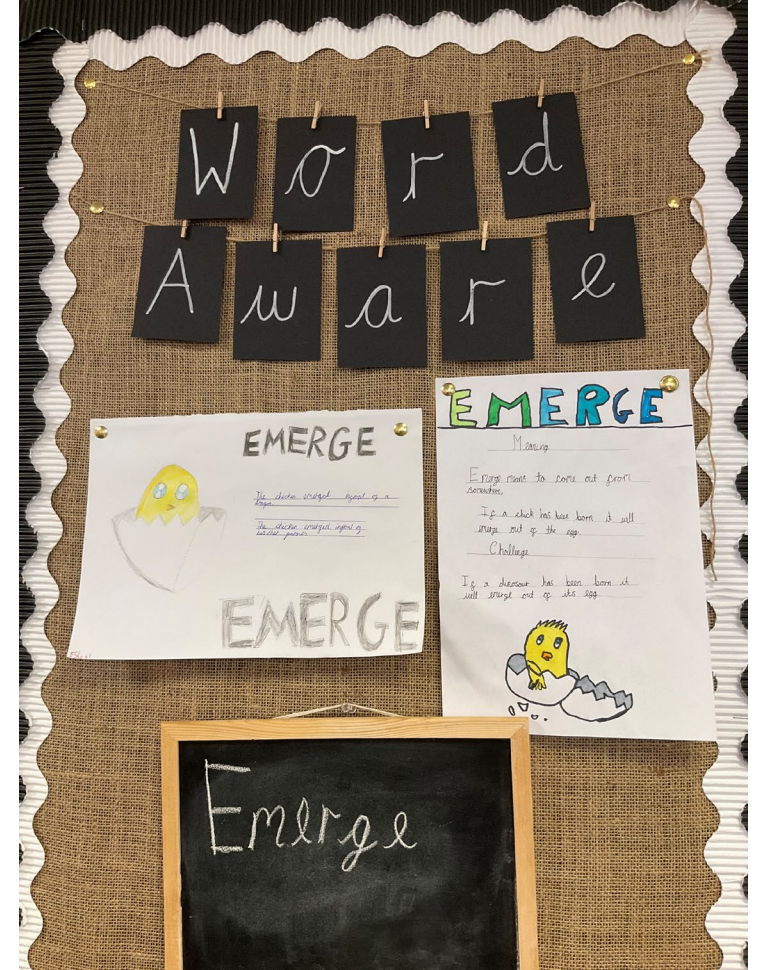 Word
Aware
EMERGE
The chicken emerged
The chicken emerged
EMERGE
EMERGE
Meaning
Emerge means to come out from
somewhere.
If a chick has been born it will
emerge out of the egg.
Challenge
If a dinosaur has been born it
will emerge out of its egg.
Emerge